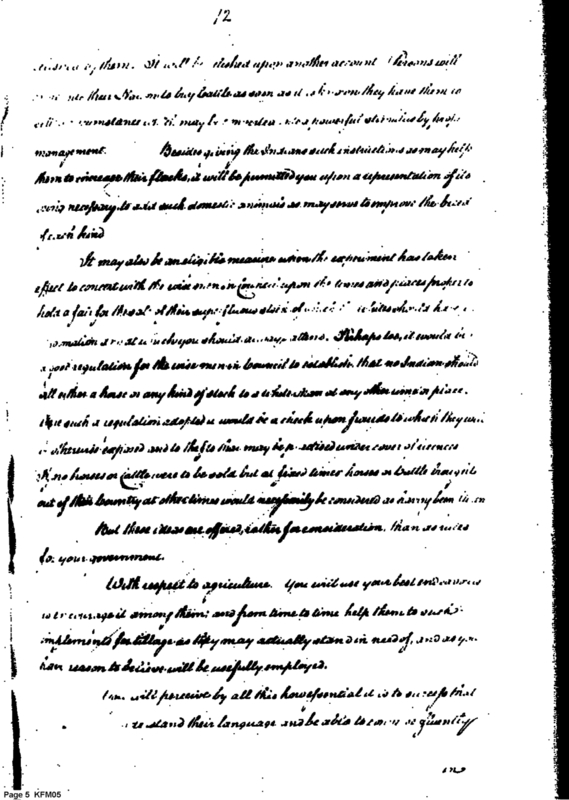 12
by them. It will be upon another account Persons will
their to buy Cattle as soon as it is known they have them to
circumstance may be a powerful stimulus by proper
management. Besides giving the Indians such instructions as may help
them to encrease their flocks, it will be permitted you upon a representation of its
being necessary, to add such domestic animals as may serve to improve the breed
of each kind
It may also be an eligible measure when the experiment has taken
effect to concert with the wise men in Council upon the times and places proper to
hold a fair for the sale of their superfluous stock of which the whites should have
information and at which you should always attend. Perhaps too, it would be
a good regulation for the wise men in Council to establish, that no Indian should
sell either a horse or any kind of stock to a white man at any other time or place.
such a regulation adopted it would be a check upon frauds to which they will
be otherwise exposed and to thefts that may be practised under cover of licences
If no horses or Cattle were to be sold but at fixed times horses or Cattle brought
out of their Country at other times would necessarily be considered as having been stolen
But these ideas are offered, rather for consideration, than as rules
for your government.
With respect to agriculture. You will use your best endeavours
to encourage it among them; and from time to time help them to such
implements for tillage as they may actually stand in need of, and as you
have reason to believe will be usefully employed.
You will perceive by all this how essential it is to success that
stand their language and be able to frequently
in
Page 5 KFM05